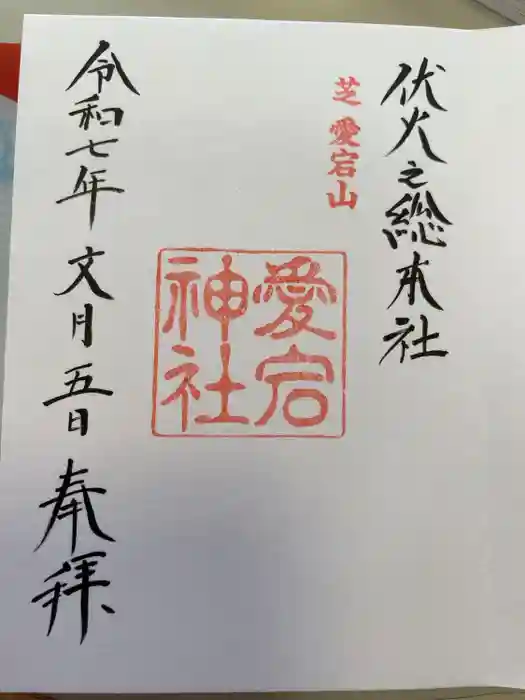 伏火之総本社
芝 愛宕山
愛宕
神社
令和七年 文月五日 奉拝